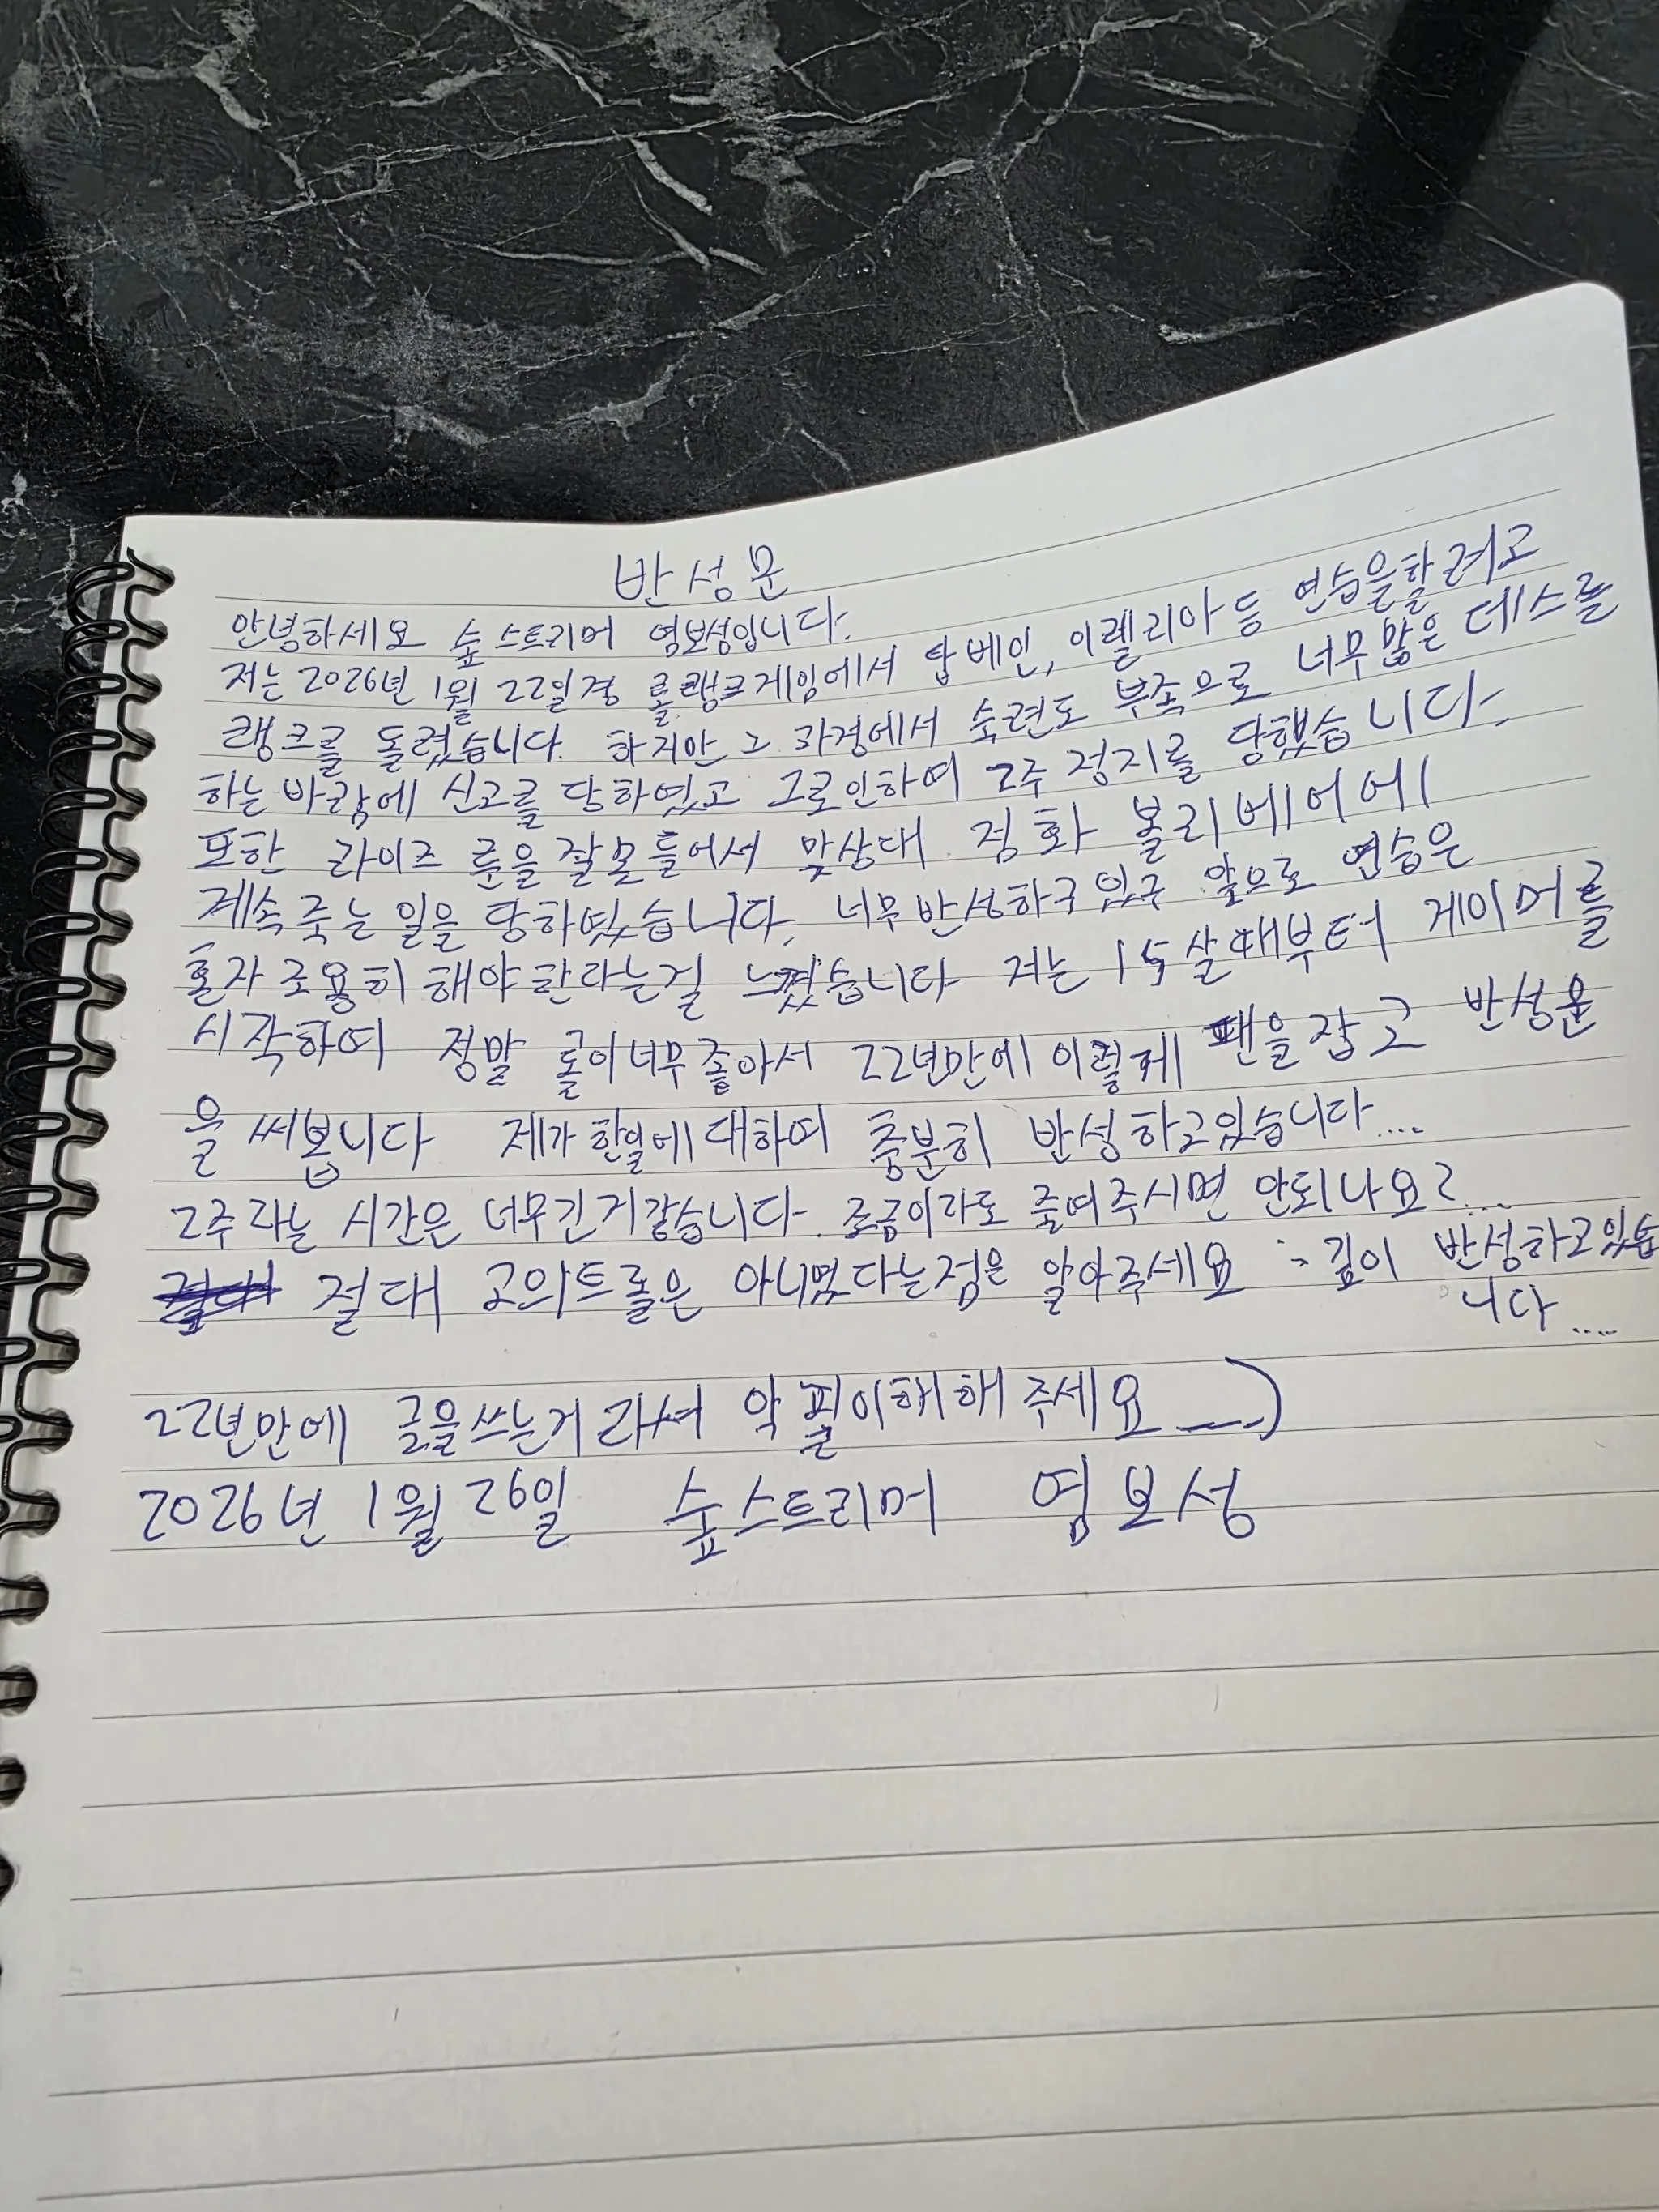 반성문
안녕하세요 숲 스트리머 염보성입니다.
저는 2026년 1월 22일경 롤랭크게임에서 탑 베인, 이렐리아 등 연습을할려고
랭크를 돌렸습니다. 하지만 그 과정에서 숙련도 부족으로 너무많은 데스를
하는바람에 신고를 당하였고 그로인하여 2주 정지를 당했습니다.
또한 라이즈 룬을 잘못들어서 맞상대 정화 볼리베어에
계속죽는 일을 당하였습니다. 너무반성하구있구 앞으로 연습은
혼자 조용히 해야한다는걸 느꼈습니다 저는 15살때부터 게이머를
시작하여 정말 롤이너무좋아서 22년만에이렇게 팬을잡고 반성문
을 써봅니다 제가한일에대하여 충분히 반성하고있습니다....
2주라는 시간은 너무긴거같습니다. 조금이라도 줄여주시면 안되나요?....
절대 고의트롤은 아니였다는점은 알아주세요 깊이 반성하고있습
니다....
22년만에 글을쓰는거라서 악필이해해주세요
2026년 1월 26일 숲스트리머 염보성